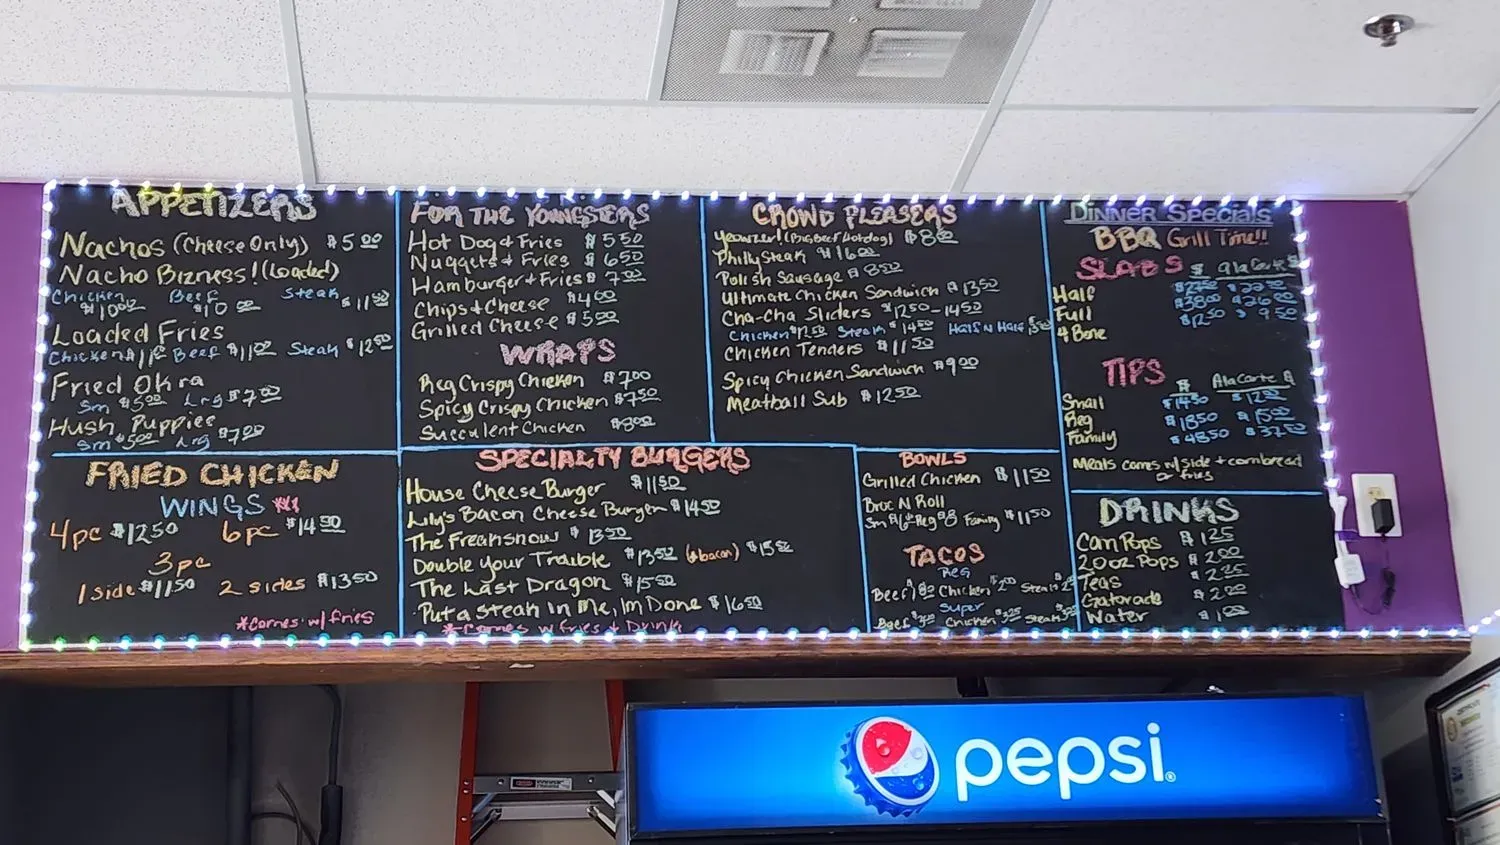 APPETIZERS
Nachos (Cheese Only) $5.00
Nacho Bizness! (Loaded)
Chicken Beef Steak
$10.00 $10.00 $11.50
Loaded Fries
Chicken $11 Beef $11.00 Steak $12.50
Fried Okra
Sm $5.00 Lrg $7.00
Hush Puppies
Sm $5.00 Lrg $7.00
FRIED CHICKEN
WINGS
4pc $12.50 6pc $14.50
3pc
1 side $11.50 2 sides $13.50
*Comes w/ fries
FOR THE YOUNGSTERS
Hot Dog & Fries $5.50
Nuggets & Fries $6.50
Hamburger & Fries $7.00
Chips & Cheese $4.00
Grilled Cheese $5.00
WRAPS
Reg Crispy Chicken $7.00
Spicy Crispy Chicken $7.50
Succulent Chicken $8.00
SPECIALTY BURGERS
House Cheese Burger $11.50
Lily's Bacon Cheese Burger $14.50
The Freakshow $13.50
Double Your Trouble $13.50 (+bacon) $15.50
The Last Dragon $15.50
Put a Steak In Me, Im Done $16.50
*Comes w/ fries + Drink
CROWD PLEASERS
Yeowzer! (Big Beef Hotdog) $8.00
Philly Steak $16.00
Polish Sausage $8.50
Ultimate Chicken Sandwich $13.50
Cha-Cha Sliders $12.50-14.50
Chicken $12.50 Steak $14.50 Half N Half
Chicken Tenders $11.50
Spicy Chicken Sandwich $9.00
Meatball Sub $12.50
BOWLS
Grilled Chicken $11.50
Broc N Roll
Sm Reg $8 Family $11.50
TACOS
Reg
Beef Chicken $2.00 Steak
Super
Beef Chicken $3.25 Steak
Dinner Specials
BBQ Grill Time!!
SLABS $ ala Carte $
Half
Full $38.00 $26.00
4 Bone $12.50 $9.50
TIPS $ Ala Carte $
Small $14.50 $12.00
Reg $18.50 $15.00
Family $48.50 $37.50
Meals comes w/ side + cornbread
or fries
DRINKS
Can Pops $1.25
20oz Pops $2.00
Teas $2.25
Gatorade $2.00
Water $1.00
pepsi